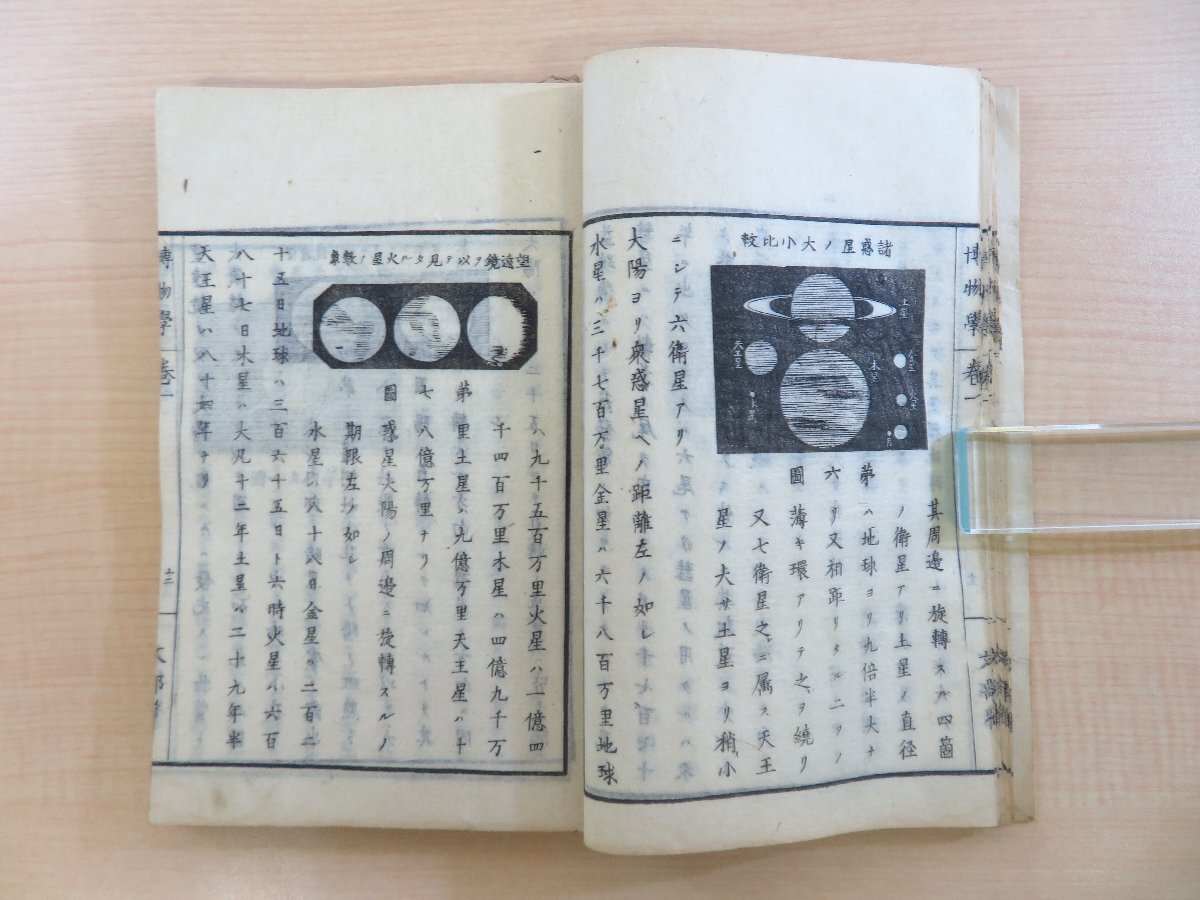 博物學 卷一
諸惑星ノ大小比較
土星
木星
天王星
水星
金星
火星
其周邊ニ旋轉スル四箇
ノ衛星アリ土星ノ直徑
ハ地球ヨリ九倍半大ナ
リ又相距リタルニツノ
薄キ環アリテ之ヲ繞リ
又七衛星之ニ属ス天王
星ノ大サ土星ヨリ稍小
第
六
圖
ニシテ六衛星アリ
大陽ヨリ衆惑星ヘノ距離左ノ如シ
水星ハ三千七百万里金星ハ六千八百万里地球
望遠鏡ヲ以テ見タル火星ノ数象
ハ九千五百万里火星ハ一億四
千四百万里木星ハ四億九千万
里土星ハ九億万里天王星ハ十
八億万里ナリ
惑星大陽ノ周邊ニ旋轉スルノ
期限左ノ如シ
第
七
圖
水星ハ八十八日金星ハ二百二
十五日地球ハ三百六十五日ト六時火星ハ六百
八十七日木星ハ大凡十二年土星ハ二十九年半
天王星ハ八十四年ナリ
博物學 卷一
十二
文部省